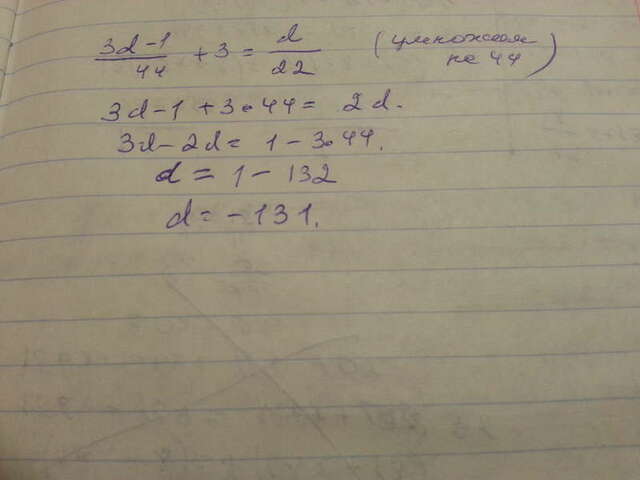 (3d-1)/44 + 3 = d/22 (умножаем на 44)
3d-1+3•44= 2d.
3d-2d= 1-3•44.
d = 1-132
d=-131.